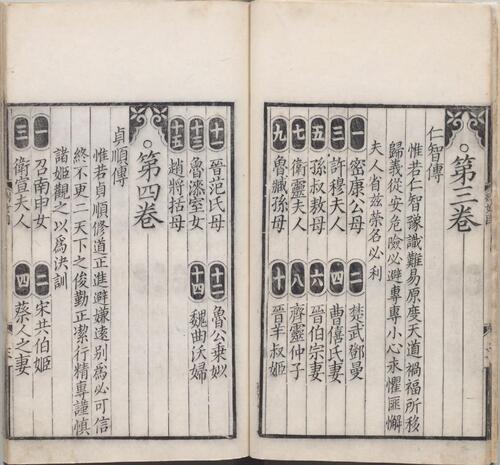 第三卷
仁智傳
惟若仁智豫識難易原度天道禍福所移
歸義從安危險必避專專小心永懼匪懈
夫人省兹榮名必利
一 密康公母 二 楚武鄧曼
三 許穆夫人 四 曹僖氏妻
五 孫叔敖母 六 晉伯宗妻
七 衛靈夫人 八 齊靈仲子
九 魯臧孫母 十 晉羊叔姬
十一 晉范氏母 十二 魯公乘姒
十三 魯漆室女 十四 魏曲沃婦
十五 趙將括母
第四卷
貞順傳
惟若貞順修道正進避嫌遠別為必可信
終不更二天下之俊勤正潔行精專謹慎
諸姬觀之以為法訓
一 召南申女 二 宋共伯姬
三 衛宣夫人 四 蔡人之妻